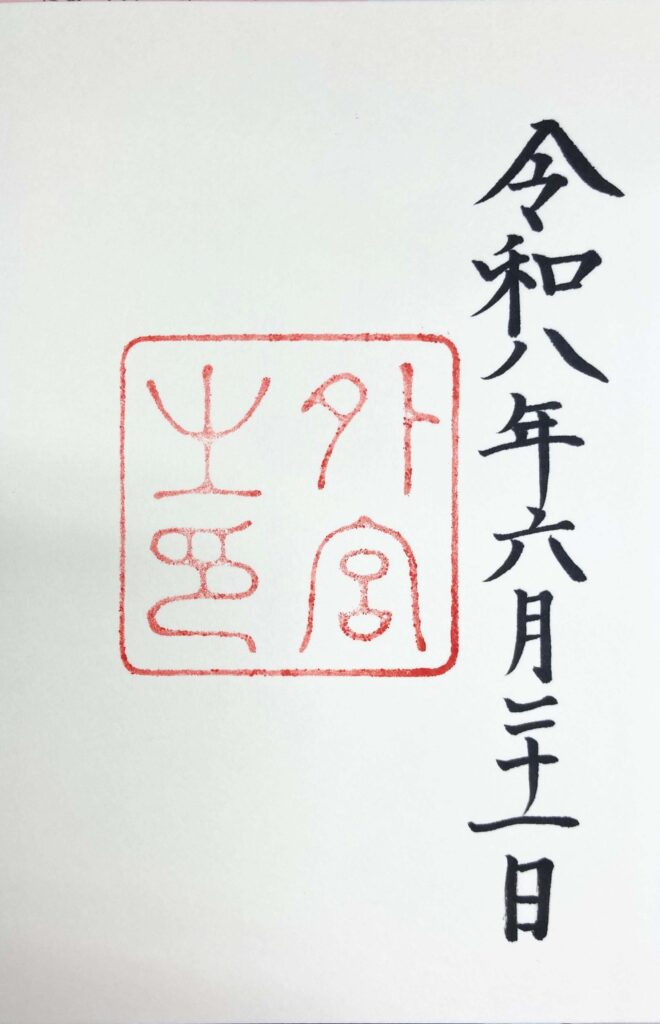 令和八年六月二十一日
外宮
之印